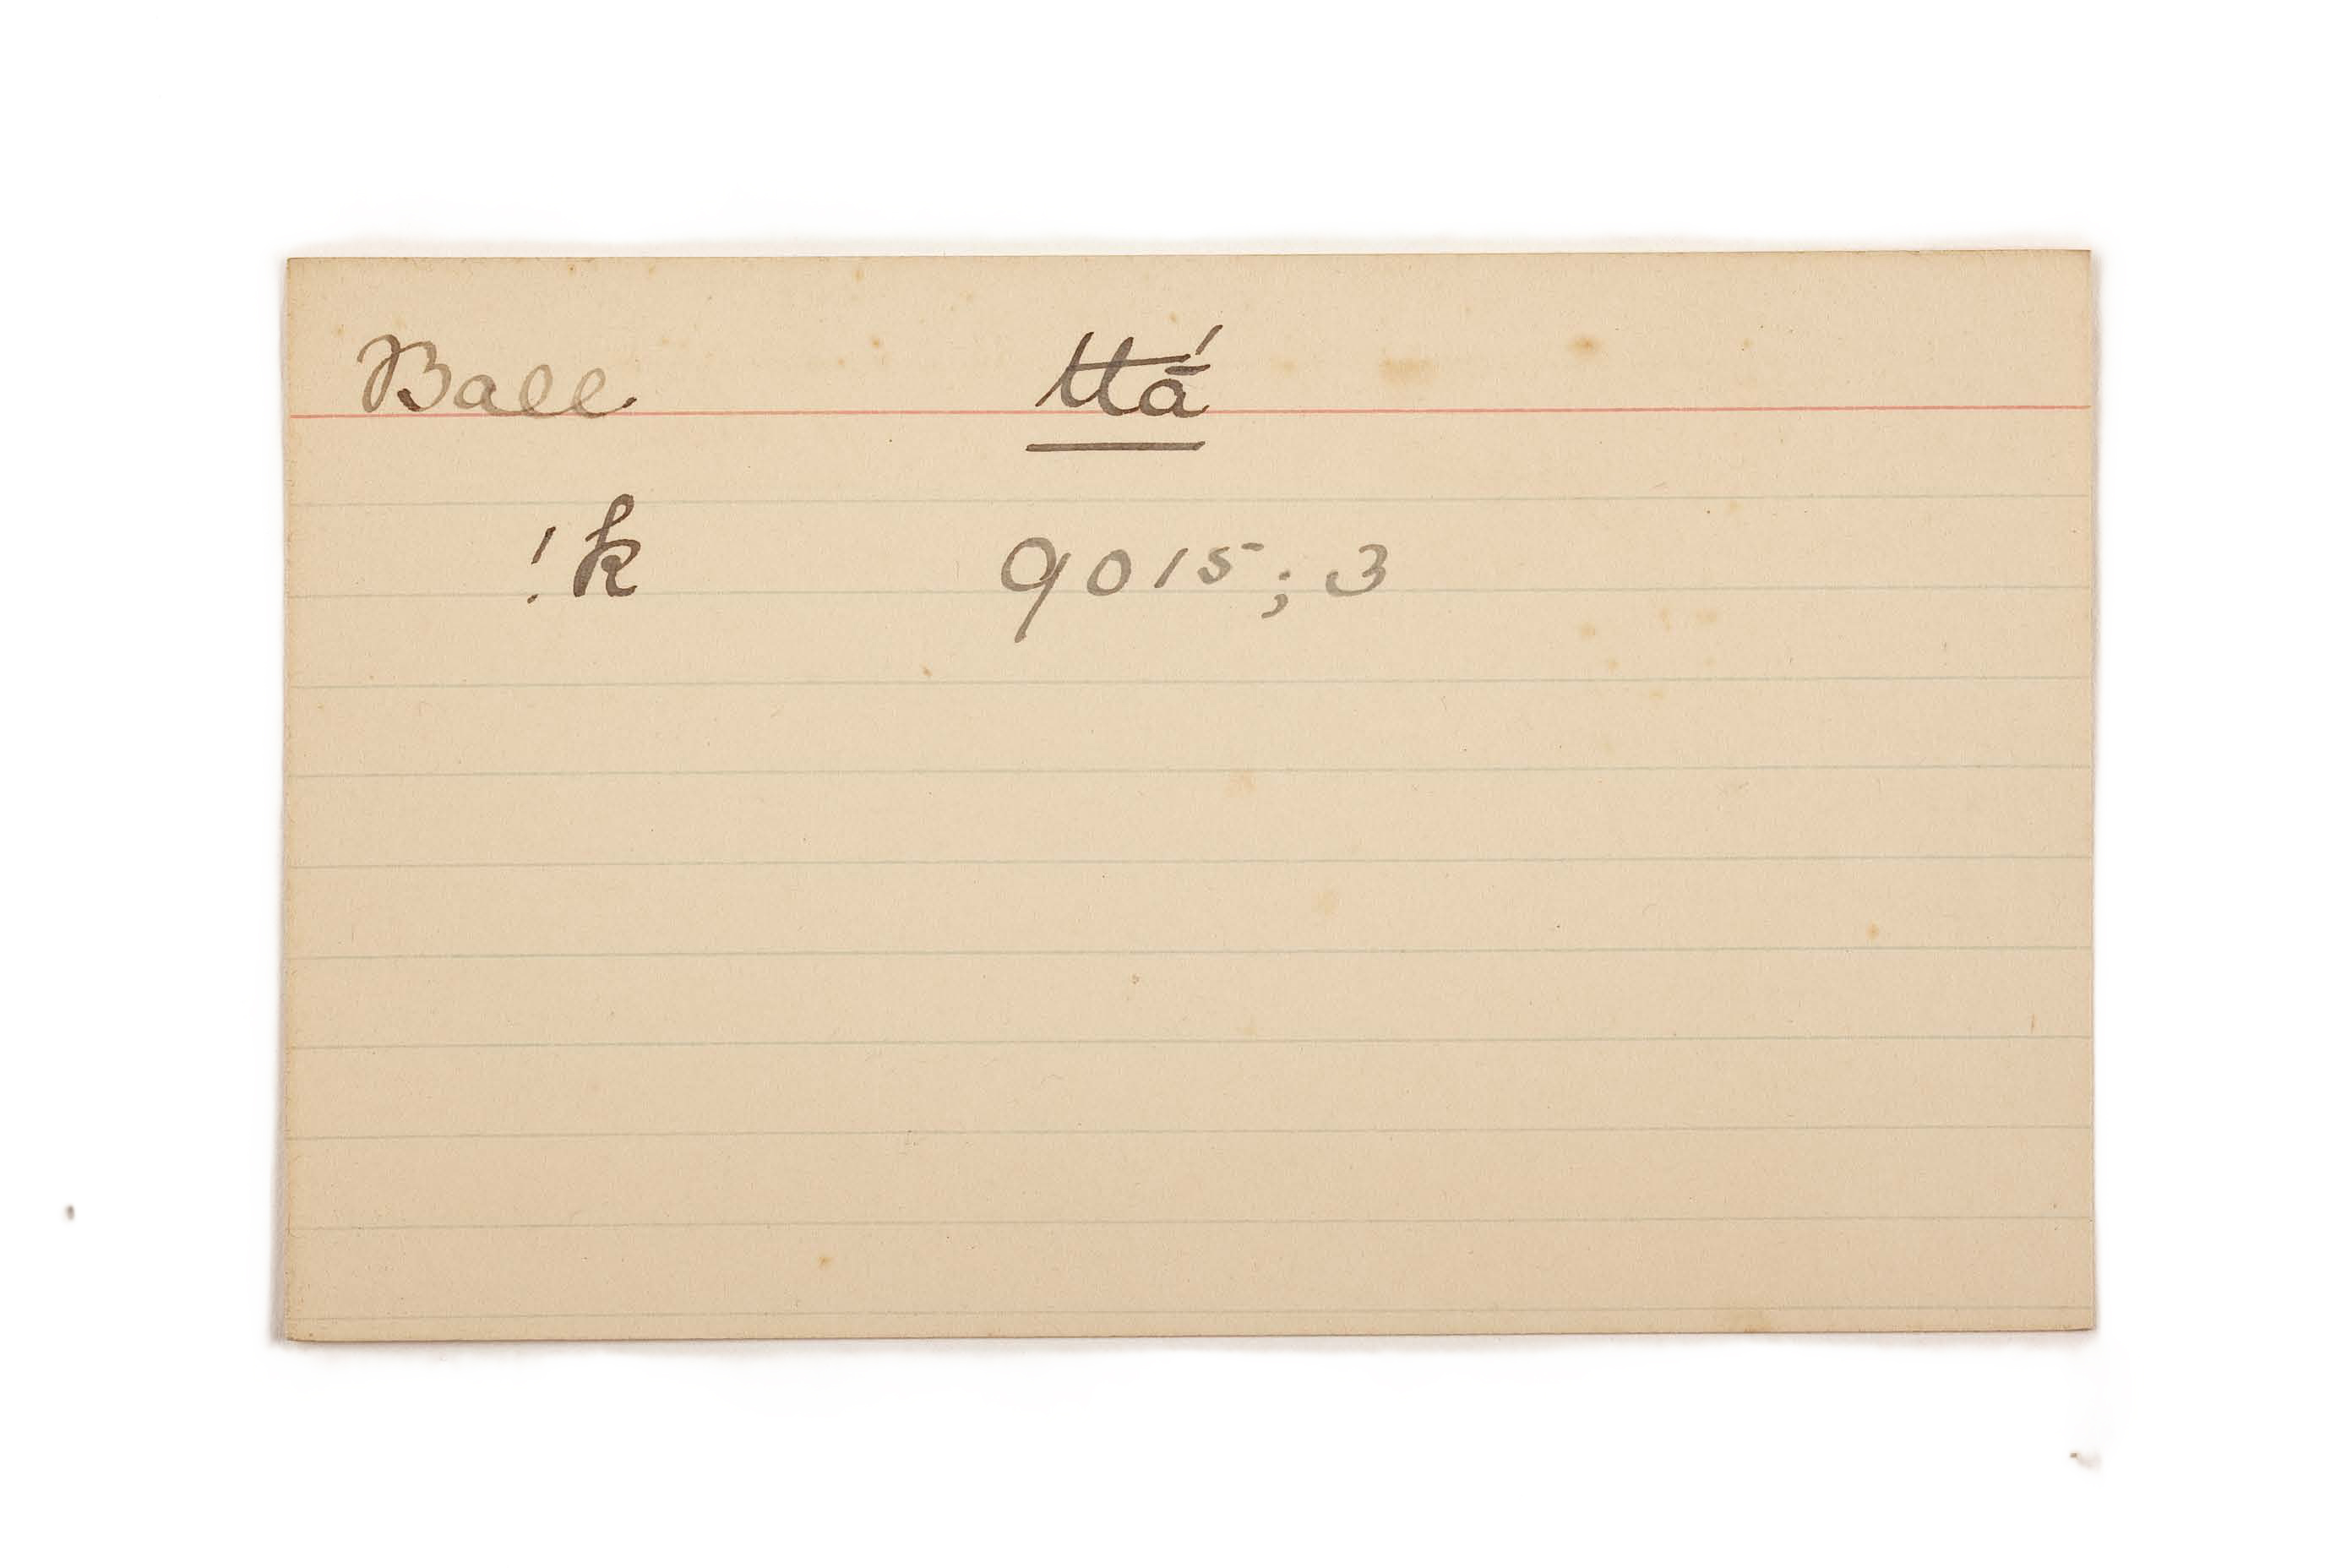 Ball ttā́
!k 9015; 3